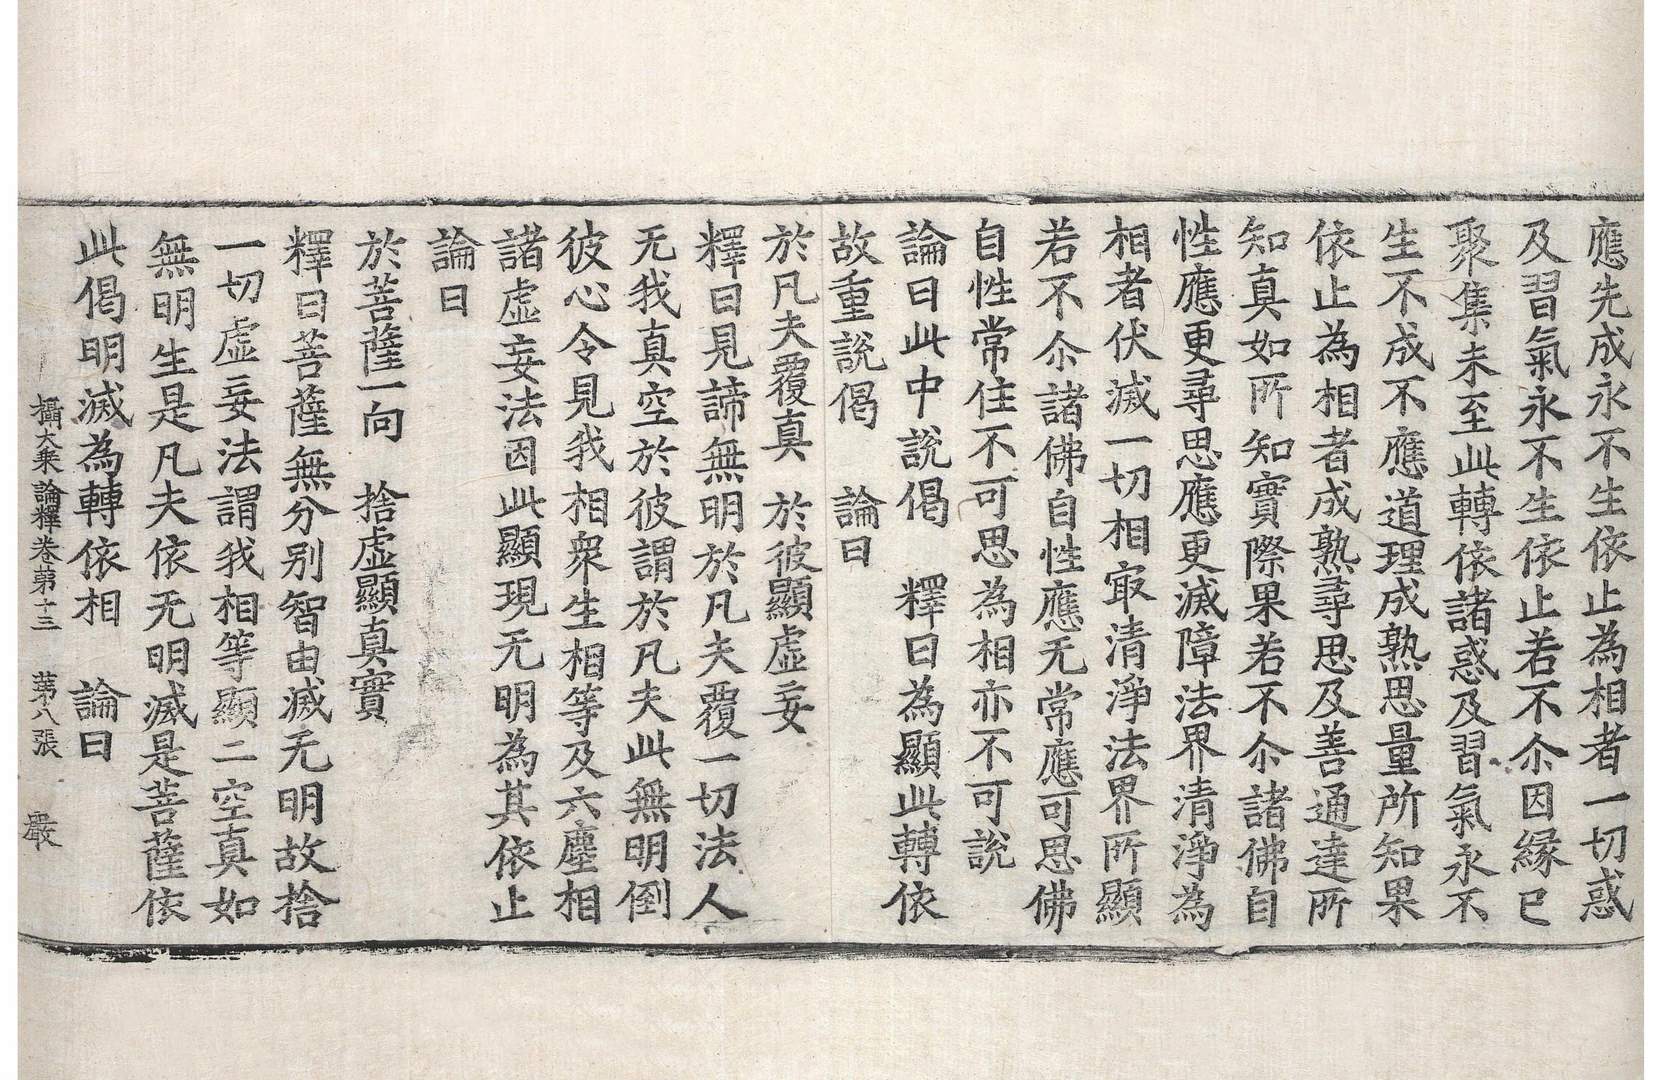 應先成永不生依止為相者一切惑
及習氣永不生依止若不尒因縁已
聚集未至此轉依諸惑及習氣永不
生不成不應道理成熟思量所知果
依止為相者成熟尋思及善通達所
知真如所知實際果若不尒諸佛自
性應更尋思應更滅障法界清淨為
相者伏滅一切相㝡清淨法界所顯
若不尒諸佛自性應无常應可思佛
自性常住不可思為相亦不可說
論曰此中說偈　釋曰為顯此轉依
故重說偈　論曰
於凡夫覆真　於彼顯虛妄
釋曰見諦無明於凡夫覆一切法人
无我真空於彼謂於凡夫此無明倒
彼心令見我相衆生相等及六塵相
諸虛妄法因此顯現无明為其依止
論曰
於菩薩一向　捨虛顯真實
釋曰菩薩無分別智由滅无明故捨
一切虛妄法謂我相等顯二空真如
無明生是凡夫依无明滅是菩薩依
此偈明滅為轉依相　論曰
攝大乘論釋卷第十三　第八張　嚴